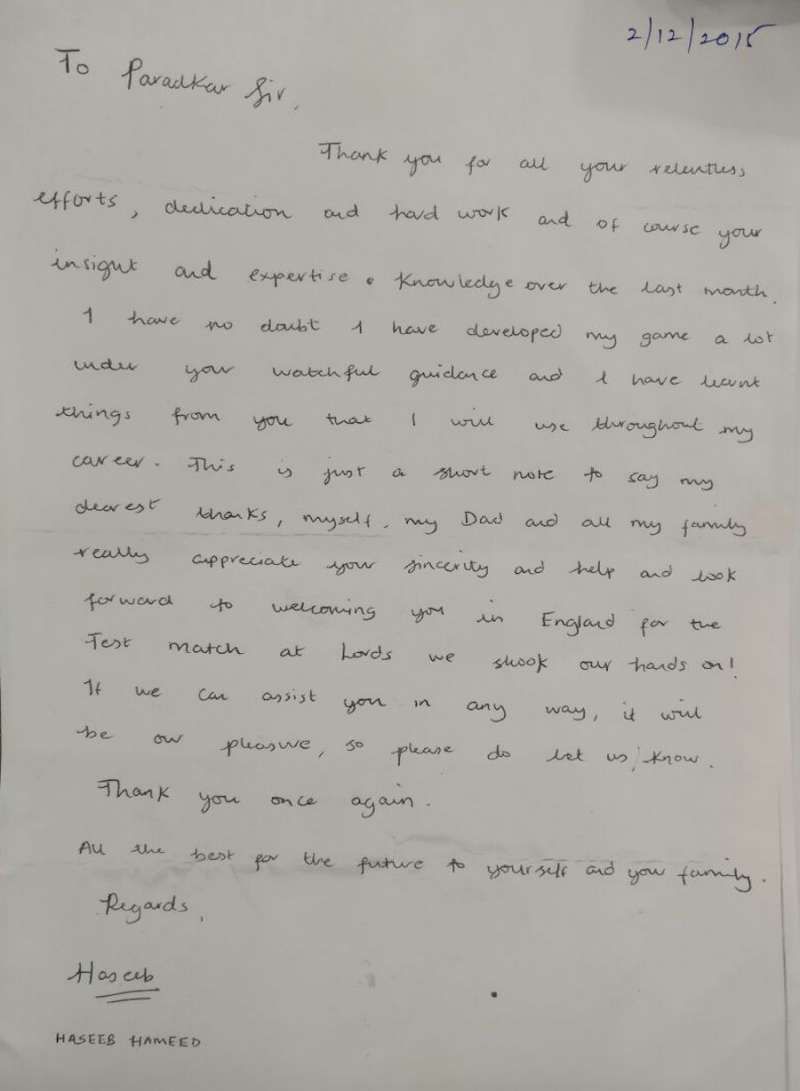 2/12/2015
To Paradkar Sir,
Thank you for all your relentless
efforts, dedication and hard work and of course your
insight and expertise . Knowledge over the last month.
I have no doubt I have developed my game a lot
under your watchful guidance and I have learnt
things from you that I will use throughout my
career. This is just a short note to say my
dearest thanks, myself, my Dad and all my family
really appreciate your sincerity and help and look
forward to welcoming you in England for the
Test match at Lords we shook our hands on!
If we can assist you in any way, it will
be our pleasure, so please do let us know.
Thank you once again.
All the best for the future to yourself and your family.
Regards,
Haseeb
HASEEB HAMEED